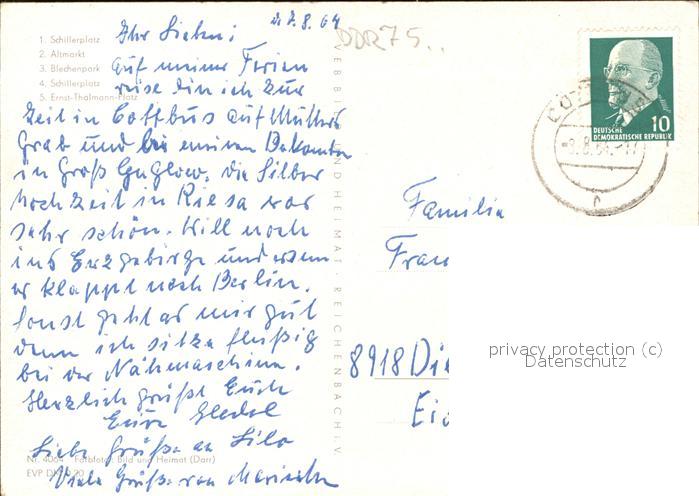 d. 7.8.64
DDR 75..
1. Schillerplatz
2. Altmarkt
3. Blechenpark
4. Schillerplatz
5. Ernst-Thälmann-Platz
Ihr Lieben!
Auf meiner Ferien
reise bin ich zur
Zeit in Cottbus auf Mutters
Grab und bei meinen Bekannten
in Groß Gaglow. Die Silber
hochzeit in Riesa war
sehr schön. Will noch
ins Erzgebirge und wenn
es klappt nach Berlin.
Sonst geht es mir gut
denn ich sitze fleißig
bei der Nähmaschine.
Herzlich grüßt Euch
Eure
Liebe Grüße an
Viele Grüße von
BILD UND HEIMAT · REICHENBACH i. V.
Nr. 4064 Farbfotos: Bild und Heimat (Darr)
EVP
DEUTSCHE
DEMOKRATISCHE REPUBLIK
10
Familie
8918
privacy protection (c)
Datenschutz